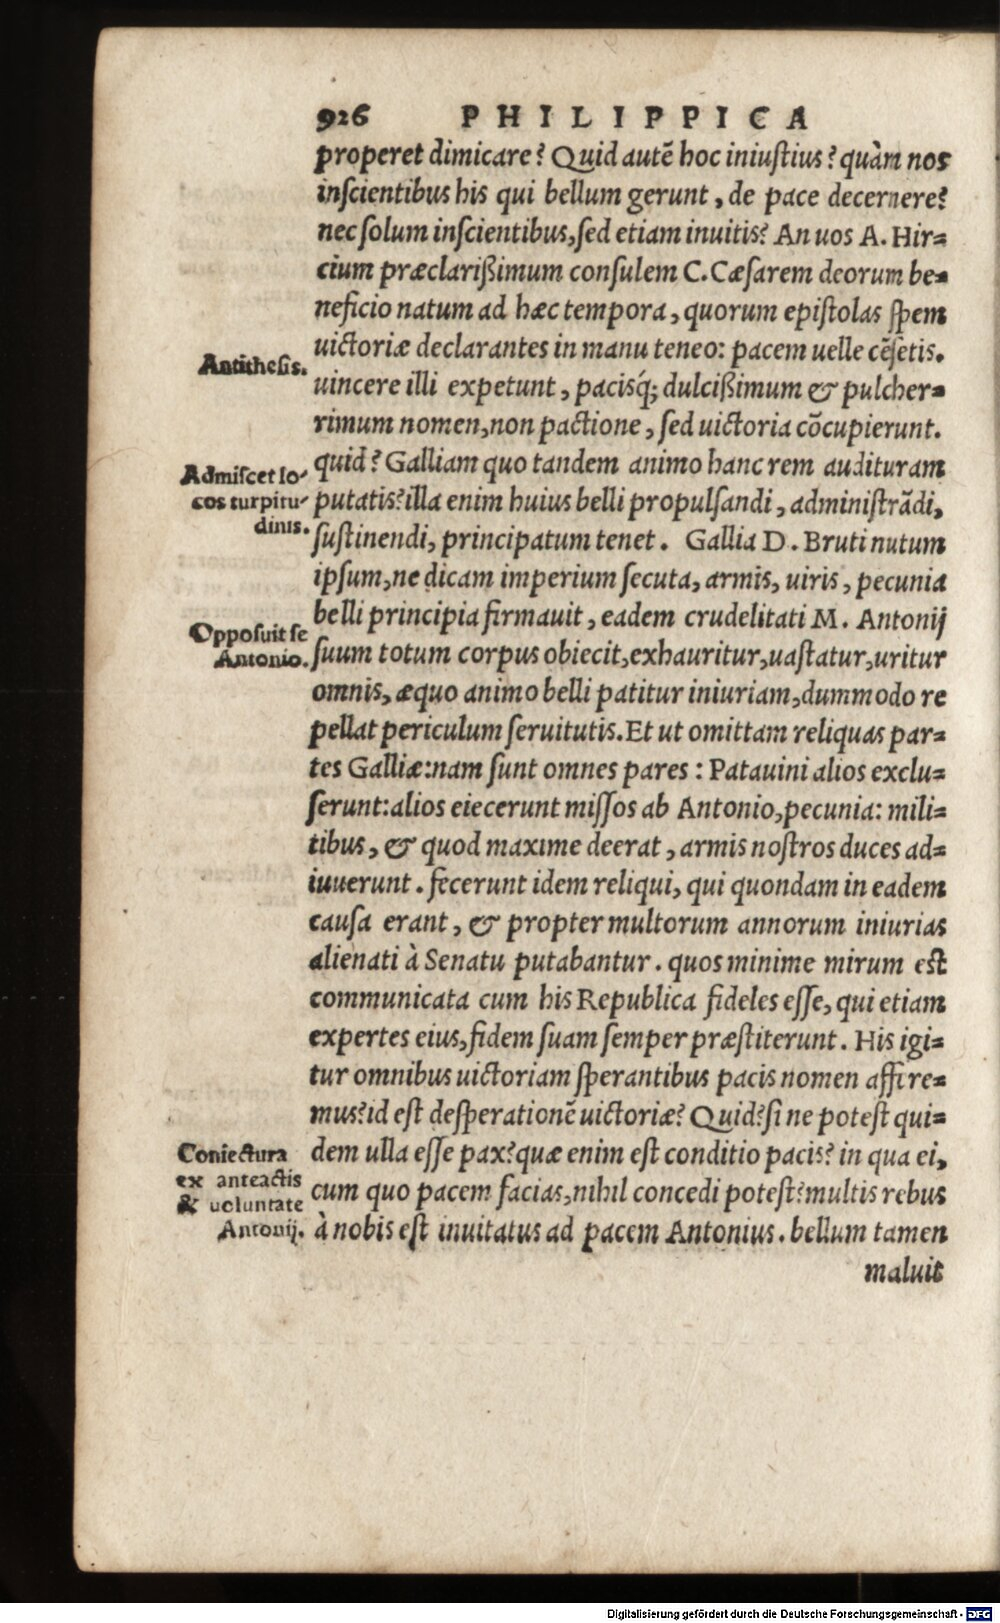 926 PHILIPPICA
properet dimicare? Quid autē hoc iniuſtius? quàm nos
inſcientibus his qui bellum gerunt, de pace decernere?
nec ſolum inſcientibus, ſed etiam inuitis? An uos A. Hir=
cium præclarißimum conſulem C. Cæſarem deorum be=
neficio natum ad hæc tempora, quorum epiſtolas ſpem
uictoriæ declarantes in manu teneo: pacem uelle cēſetis.
Antitheſis.
uincere illi expetunt, pacisq́; dulcißimum & pulcher=
rimum nomen, non pactione, ſed uictoria cōcupierunt.
quid? Galliam quo tandem animo hanc rem audituram
Admiſcet lo-
cos turpitu-
dinis.
putatis? illa enim huius belli propulſandi, adminiſtrādi,
ſuſtinendi, principatum tenet. Gallia D. Bruti nutum
ipſum, ne dicam imperium ſecuta, armis, uiris, pecunia
belli principia firmauit, eadem crudelitati M. Antonij
Oppoſuit ſe
Antonio.
ſuum totum corpus obiecit, exhauritur, uaſtatur, uritur
omnis, æquo animo belli patitur iniuriam, dummodo re
pellat periculum ſeruitutis. Et ut omittam reliquas par=
tes Galliæ: nam ſunt omnes pares: Patauini alios exclu=
ſerunt: alios eiecerunt miſſos ab Antonio, pecunia: mili=
tibus, & quod maxime deerat, armis noſtros duces ad=
iuuerunt. fecerunt idem reliqui, qui quondam in eadem
cauſa erant, & propter multorum annorum iniurias
alienati à Senatu putabantur. quos minime mirum eſt
communicata cum his Republica fideles eſſe, qui etiam
expertes eius, fidem ſuam ſemper præſtiterunt. His igi=
tur omnibus uictoriam ſperantibus pacis nomen affire=
mus? id eſt deſperationē uictoriæ? Quid? ſi ne poteſt qui=
Coniectura
ex anteactis
& uoluntate
Antonij.
dem ulla eſſe pax? quæ enim eſt conditio pacis? in qua ei,
cum quo pacem facias, nihil concedi poteſt? multis rebus
à nobis eſt inuitatus ad pacem Antonius. bellum tamen
maluit
Digitalisierung gefördert durch die Deutsche Forschungsgemeinschaft - DFG